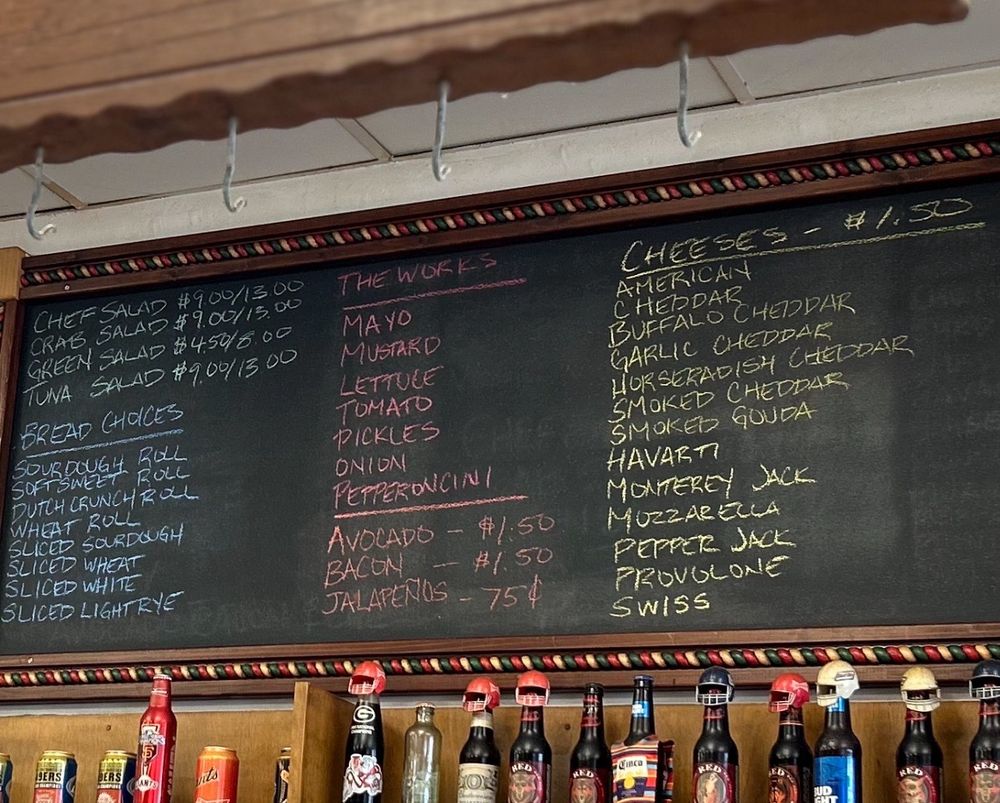 CHEF SALAD $9.00/13.00
CRAB SALAD $9.00/13.00
GREEN SALAD $4.50/8.00
TUNA SALAD $9.00/13.00
BREAD CHOICES
SOURDOUGH ROLL
SOFT SWEET ROLL
DUTCH CRUNCH ROLL
WHEAT ROLL
SLICED SOURDOUGH
SLICED WHEAT
SLICED WHITE
SLICED LIGHT RYE
THE WORKS
MAYO
MUSTARD
LETTUCE
TOMATO
PICKLES
ONION
PEPPERONCINI
AVOCADO - $1.50
BACON - $1.50
JALAPEÑOS - 75¢
CHEESES - $1.50
AMERICAN
CHEDDAR
BUFFALO CHEDDAR
GARLIC CHEDDAR
HORSERADISH CHEDDAR
SMOKED CHEDDAR
SMOKED GOUDA
HAVARTI
MONTEREY JACK
MOZZARELLA
PEPPER JACK
PROVOLONE
SWISS
SF
GIANTS
G
Cinco
RED
RED
RED
RED
BUD
LIGHT
RED
RED